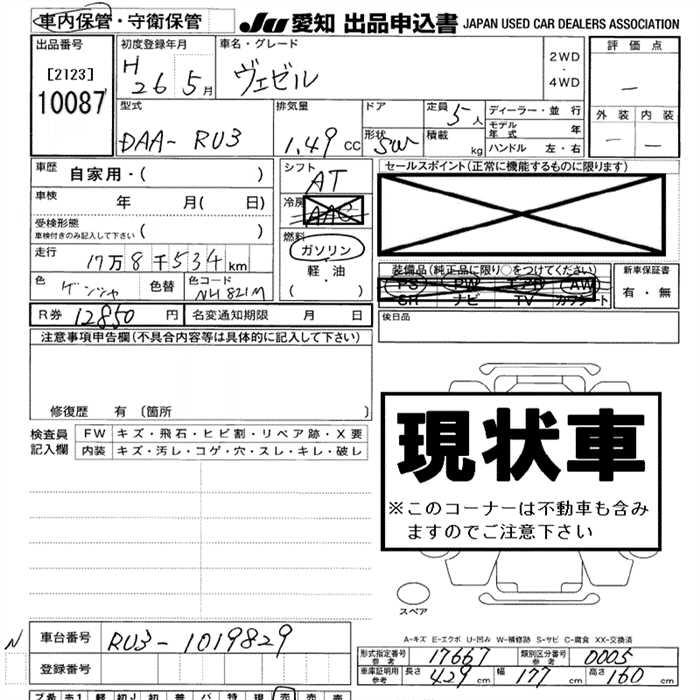 車内保管・守衛保管
JU 愛知 出品申込書 JAPAN USED CAR DEALERS ASSOCIATION
出品番号
[2123]
10087
初度登録年月
H 26 5月
車名・グレード
ヴェゼル
2WD
・
4WD
評価点
—
外装 内装
— —
型式
DAA-RU3
排気量
1.49 CC
ドア
形状 SW
定員 5人
積載 kg
ディーラー・並行
モデル年式 年
ハンドル 左・右
車歴 自家用・( )
車検 年 月( 日)
受検形態
車検付きのみ記入して下さい ( )
走行 17万8千534km
色 色替 色コード
NH821M
シフト AT
冷房 AAC
燃料
ガソリン
・
軽・油
・
( )
セールスポイント(正常に機能するものに限ります)
装備品(純正品に限り○をつけてください)
PS PW エアB AW
SR ナビ TV カワシート
新車保証書
有・無
R券 12850円 名変通知期限 月 日
後日品
注意事項申告欄(不具合内容等は具体的に記入して下さい)
修復歴 有〔箇所 〕
検査員記入欄
FW キズ・飛石・ヒビ割・リペア跡・X要
内装 キズ・汚レ・コゲ・穴・スレ・キレ・破レ
現状車
※このコーナーは不動車も含み
ますのでご注意下さい
スペア
A-キズ E-エクボ U-凹み W-補修跡 S-サビ C-腐食 XX-交換済
N
車台番号 RU3-1019829
登録番号
形式指定番号 参考 17667 類別区分番号 参考 0005
車庫証明用 参考 長さ 429cm 幅 177cm 高さ 160cm